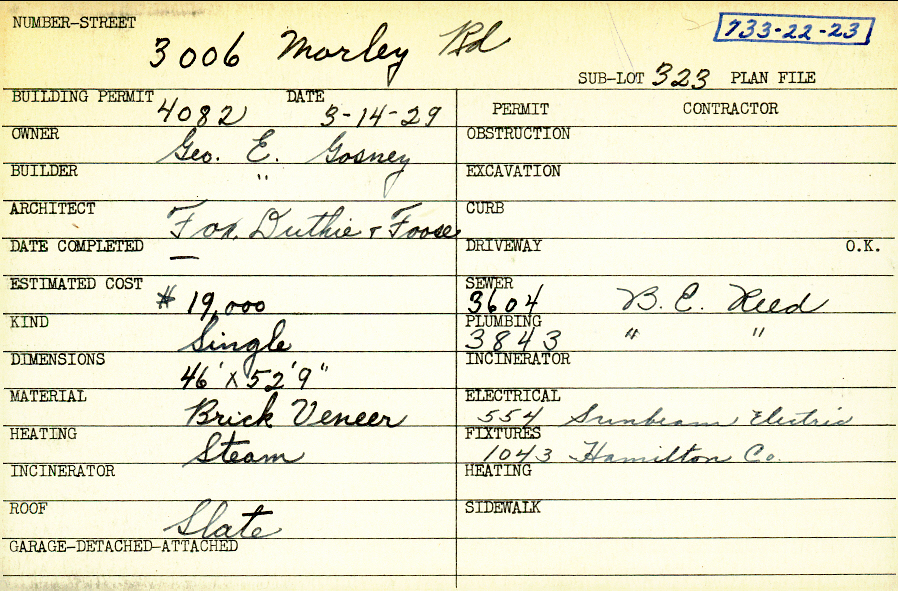 NUMBER-STREET 3006 Morley Rd 733-22-23
SUB-LOT 323 PLAN FILE
BUILDING PERMIT 4082 DATE 3-14-29
OWNER Geo. E. Gosney
BUILDER "
ARCHITECT Fox, Duthie & Foose
DATE COMPLETED —
ESTIMATED COST $ 19,000
KIND Single
DIMENSIONS 46' x 52'9"
MATERIAL Brick Veneer
HEATING Steam
INCINERATOR
ROOF Slate
GARAGE-DETACHED-ATTACHED
PERMIT CONTRACTOR
OBSTRUCTION
EXCAVATION
CURB
DRIVEWAY O.K.
SEWER 3604 B. E. Reed
PLUMBING 3843 " "
INCINERATOR
ELECTRICAL 554 Sunbeam Electric
FIXTURES 1043 Hamilton Co.
HEATING
SIDEWALK